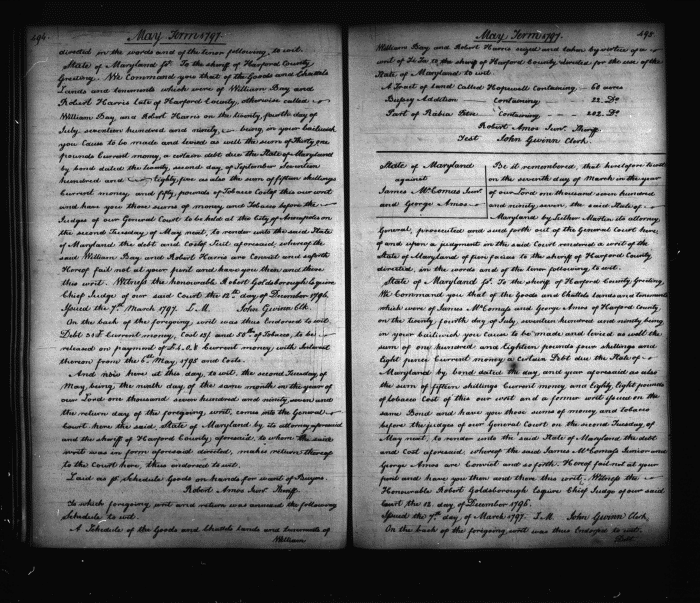 494.
May Term 1797.
directed in the words and of the tenor following, to wit.
State of Maryland ss. To the sheriff of Harford County
Greeting. We Command you that of the Goods and Chattels
Lands and tenements which were of William Bay and
Robert Harris late of Harford County, otherwise called
William Bay, and Robert Harris on the twenty fourth day of
July seventeen hundred and ninety, being in your bailiwick
you cause to be made and levied as well the sum of thirty one
pounds current money, a certain debt due the State of Maryland
by bond dated the twenty second day of September Seventeen
hundred and Eighty five as also the sum of fifteen shillings
current money and fifty, pounds of Tobacco Costs of this our writ
and have you those sums of money and Tobacco before the
Judges of our General Court to be held at the City of Annapolis on
the second Tuesday of May next, to render unto the said State
of Maryland the debt and Costs aforesaid whereof the
said William Bay and Robert Harris are Convict and so forth
Hereof fail not at your peril and have you then and there
this writ. Witness the honourable Robert Goldsborough Esquire
Chief Judge of our said Court the 12th day of December 1796.
Issued the 7th March 1797. John Gwinn Clk
On the back of the foregoing writ was thus Endorsed to wit
Debt current money, Cost 15/ and 50lb of Tobacco, to be
released on payment of current money with Interest
thereon from the 6th May, 1795 and Costs.
And now here at this day, to wit, the second Tuesday of
May, being the ninth day of the same month in the year of
our Lord one thousand seven hundred and ninety seven and
the return day of the foregoing writ, comes into the General
Court here the said State of Maryland by its attorney aforesaid
and the sheriff of Harford County aforesaid, to whom the said
writ was in form aforesaid directed, makes return thereof
to the Court here, thus endorsed to wit.
Laid as pr. Schedule Goods on hands for want of Buyers.
Robert Amos Junr. Sheriff.
To which foregoing writ and return was annexed the following
Schedule to wit.
A Schedule of the Goods and Chattels lands and tenements of
William
May Term 1797.
495.
William Bay and Robert Harris seized and taken by virtue of a
writ of Fi Fa to the sheriff of Harford County directed for the use of the
State of Maryland to wit.
A Tract of Land Called Hopewell Containing 60 acres
Addition Containing 22 Do
Part of Containing 202 Do
Robert Amos Junr. Sheriff.
Test John Gwinn Clerk.
State of Maryland
against
James McComas Junr
and George Amos
Be it remembered, that heretofore to wit
on the seventh day of March in the year
of our Lord one thousand seven hundred
and ninety seven, the said State of
Maryland by Luther Martin its attorney
General, prosecuted and sued forth out of the General Court here
of and upon a judgment in the said Court rendered a writ of the
State of Maryland of fieri facias to the sheriff of Harford County
directed, in the words and of the tenor following to wit.
State of Maryland ss. To the sheriff of Harford County Greeting,
We command you that of the goods and Chattels lands and tenements
which were of James McComass and George Amos of Harford County
on the twenty fourth day of July seventeen hundred and ninety being
in your bailiwick you cause to be made and levied as well the
sum of one hundred and Eighteen pounds four shillings and
Eight pence Current money a certain Debt due the State of
Maryland by bond dated the day and year aforesaid as also
the sum of fifteen shillings Current money and Eighty Eight pounds
of tobacco Cost of this our writ and a former writ issued on the
same Bond and have you those sums of money and tobacco
before the judges of our General Court on the second Tuesday of
May next, to render unto the said State of Maryland the debt
and Cost aforesaid, whereof the said James McComass Junior and
George Amos are Convict and so forth. Hereof fail not at your
peril and have you then and there this writ. Witness the
Honourable Robert Goldsborough Esquire Chief Judge of our said
Court the 12. day of December 1796.
Issued the 7th day of March 1797. John Gwinn Clerk,
On the back of the foregoing writ was thus Endorsed to wit.
Debt